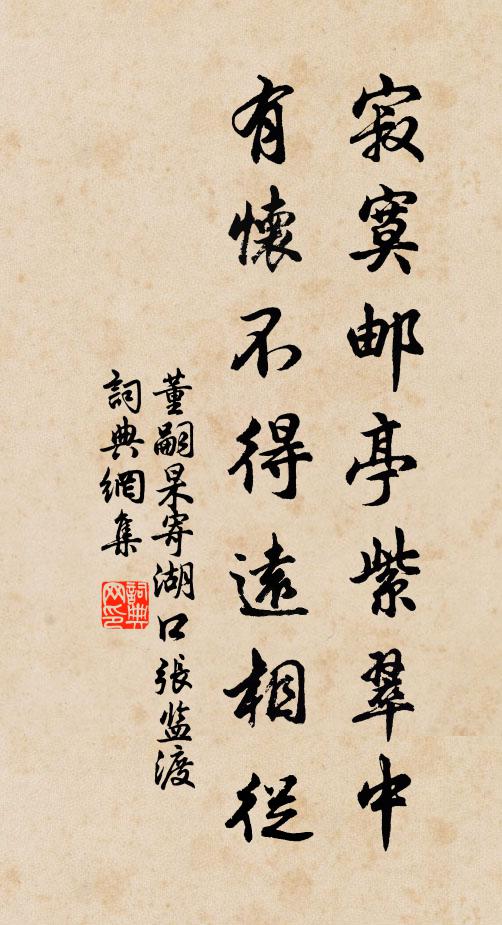 寂寞邮亭紫翠中
有懷不得遠相從
董嗣杲寄湖口張监渡
詞典網集
詞典网印